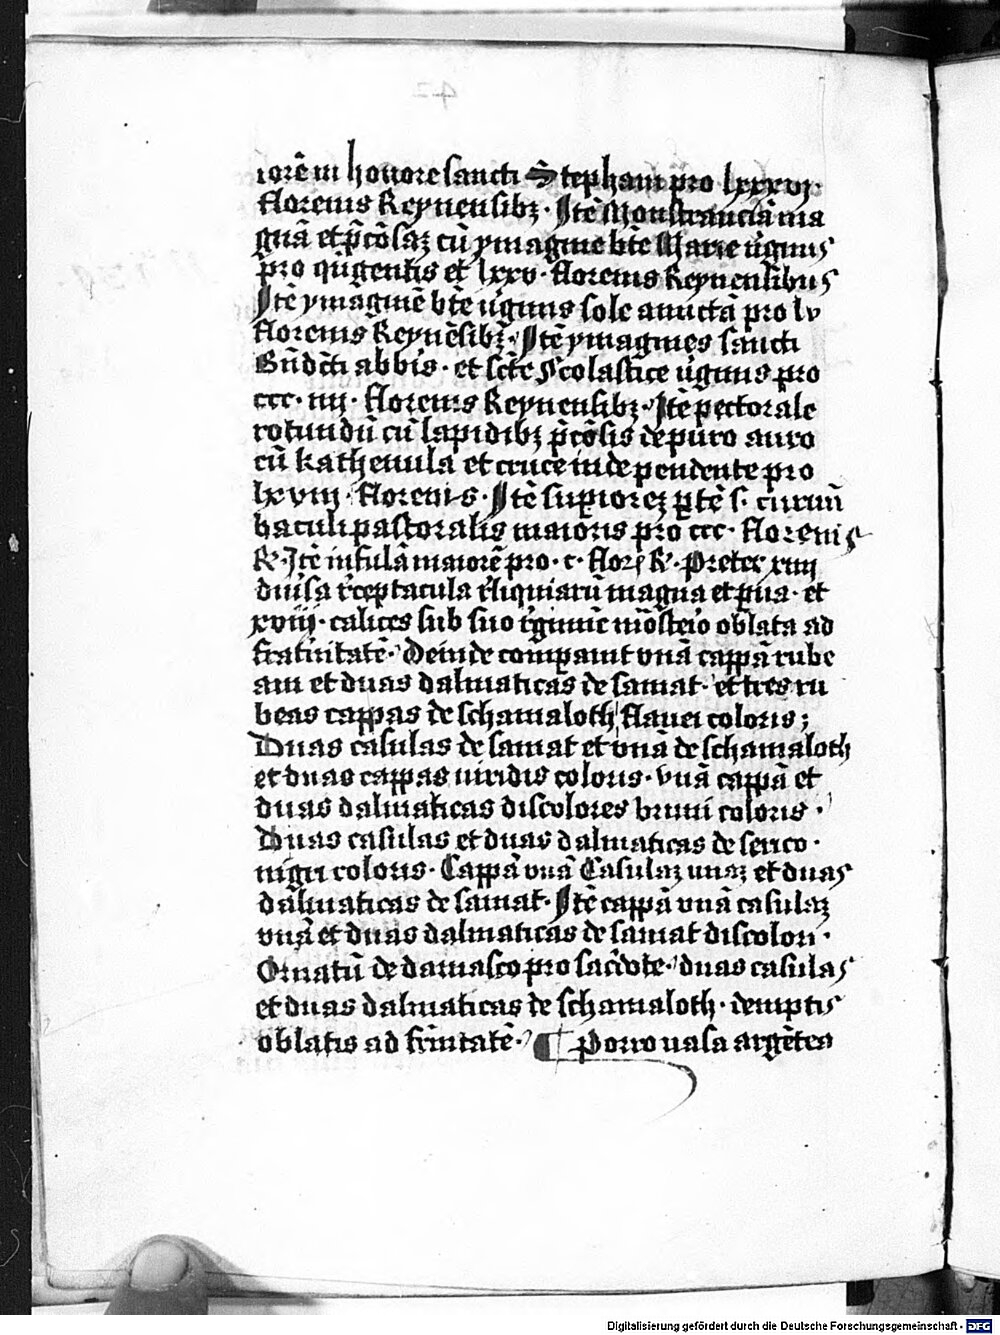 iorē in honore sancti Stephani pro lxxxvj·
florenis Reynensibꝫ · Itē Monstranciā ma
gnā et p̄cōsaꝫ cū ymagine bt̄e Marie v̓ginis
pro qu̓gentis et lxxv · florenis Reynensibus
Itē ymaginē bt̄e v̓ginis sole amictā pro lv
florenis Reynēsibꝫ · Itē ymagines sancti
Bn̄dc̄ti abb̄is · et sc̄te Scolastice v̓ginis pro
ccc · iiij · florenis Reynensibꝫ · Itē pectorale
rotundū cū lapidibꝫ p̄cōsis de puro auro
cū kathenula et cruce inde pendente pro
lxviij · florenis · Itē suꝑioreꝫ ꝑtē s· curuū
baculi pastoralis maioris pro ccc · florenis
R· Itē infulā maiorē pro · c · flor̄ R · Preter xiiij
diu̓sa r̓ceptacula r̓liquiarū magna et ꝑua · et
xviij · calices sub suo r̓gimīe mōsteīo oblata ad
frat̓nitatē · Deinde comꝑauit vnā cappā rube
am et duas dalmaticas de samat · et tres ru
beas cappas de schamaloth flauei coloris ;
Duas casulas de samat et vnā de schamaloth
et duas cappas viridis coloris · vnā cappā et
duas dalmaticas discolores bruni coloris ·
Duas casulas et duas dalmaticas de serico ·
nigri coloris · Cappā vnā Casulaꝫ vnaꝫ et duas
dalmaticas de samat · Itē cappā vnā casulaꝫ
vnā et duas dalmaticas de samat discolori ·
Ornatū de damasco pro sac̓dote · duas casulas
et duas dalmaticas de schamaloth · demptis
oblatis ad fr̄nitatē · ¶ Porro vasa argētea
Digitalisierung gefördert durch die Deutsche Forschungsgemeinschaft - DFG